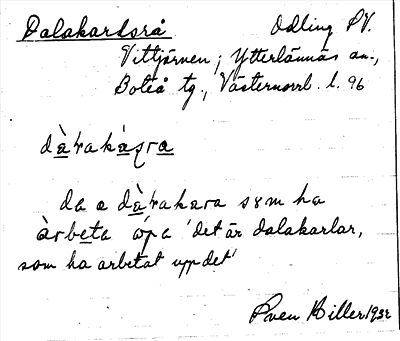 Dalakarlsrå Odling PV.
Vittjärven; Ytterlännäs sn.,
Boteå tg., Västernorrl. l. 96
dàrakáṣra
da a dàrakara sem ha
àrbeta ópa 'det är dalakarlar,
som ha arbetat upp det'
Sven Hiller 1932